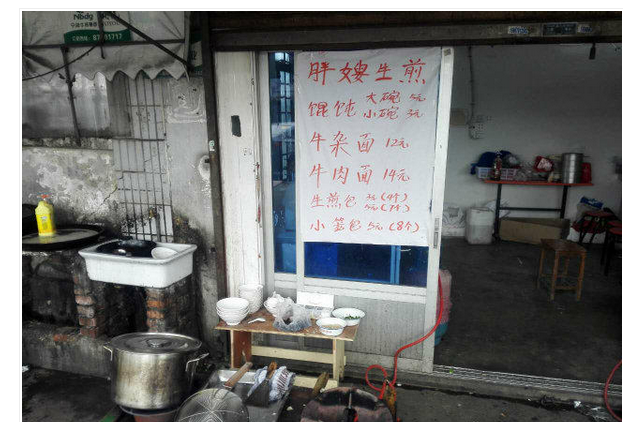 胖嫂生煎
馄饨 大碗 5元
小碗 3元
牛杂面 12元
牛肉面 14元
生煎包 3元(4个)
5元(7个)
小笼包 5元(8个)